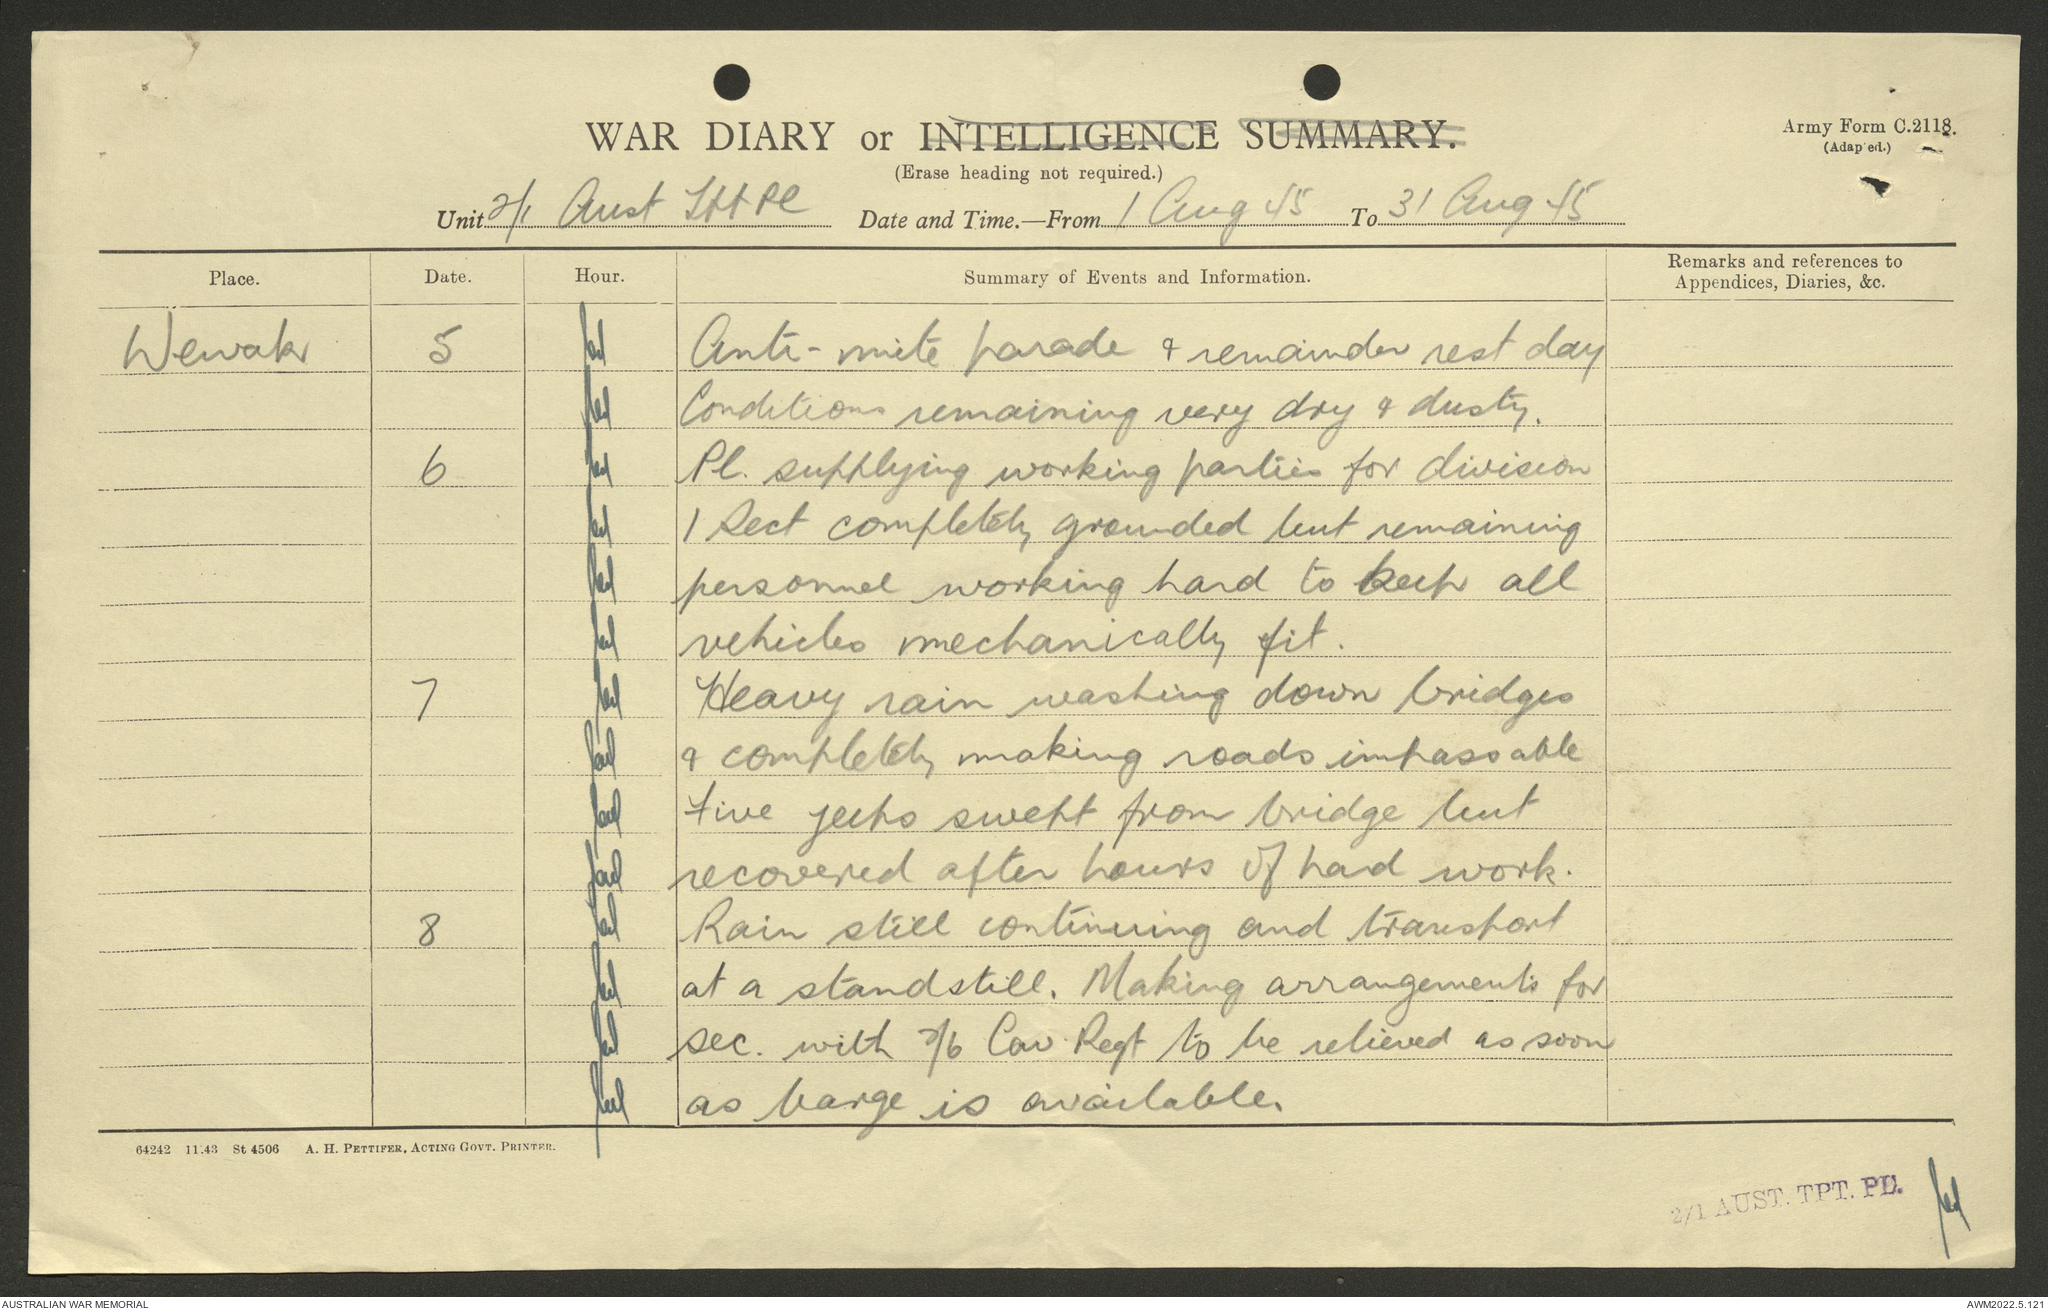 WAR DIARY or INTELLIGENCE SUMMARY.
Army Form C.2118.
(Adap ed.)
(Erase heading not required.)
Unit 2/1 Aust Date and Time.—From 1 Aug 45 To 31 Aug 45
Place. Date. Hour. Summary of Events and Information. Remarks and references to
Appendices, Diaries, &c.
Wewak 5 Anti-mite parade & remainder rest day
Conditions remaining very dry & dusty.
6 Pl. supplying working parties for division
1 Sect completely grounded but remaining
personnel working hard to keep all
vehicles mechanically fit.
7 Heavy rain washing down bridges
& completely making roads impassable
Five jeeps swept from bridge but
recovered after hours of hard work.
8 Rain still continuing and transport
at a standstill. Making arrangements for
sec. with 2/6 Cav. Regt to be relieved as soon
as barge is available.
64242 11.43 St 4506 A. H. PETTIFER, ACTING GOVT. PRINTER.
2/1 AUST. TPT. PL.
AUSTRALIAN WAR MEMORIAL
AWM2022.5.121